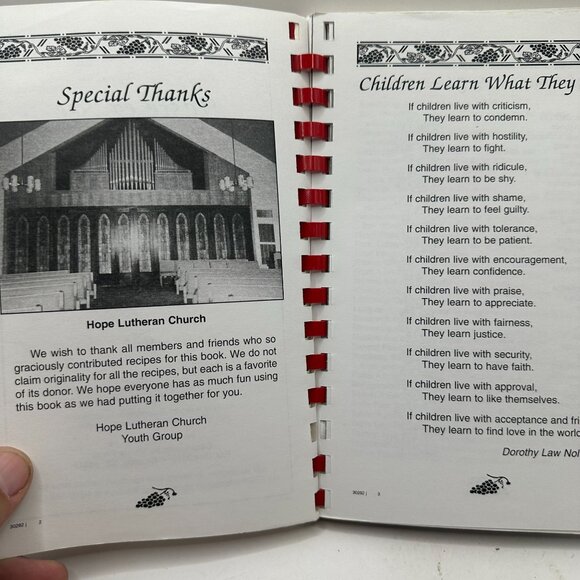 Special Thanks
Hope Lutheran Church
We wish to thank all members and friends who so
graciously contributed recipes for this book. We do not
claim originality for all the recipes, but each is a favorite
of its donor. We hope everyone has as much fun using
this book as we had putting it together for you.
Hope Lutheran Church
Youth Group
30292 j 2
Children Learn What They
If children live with criticism,
They learn to condemn.
If children live with hostility,
They learn to fight.
If children live with ridicule,
They learn to be shy.
If children live with shame,
They learn to feel guilty.
If children live with tolerance,
They learn to be patient.
If children live with encouragement,
They learn confidence.
If children live with praise,
They learn to appreciate.
If children live with fairness,
They learn justice.
If children live with security,
They learn to have faith.
If children live with approval,
They learn to like themselves.
If children live with acceptance and fri
They learn to find love in the world
Dorothy Law Nol
30292 j 3